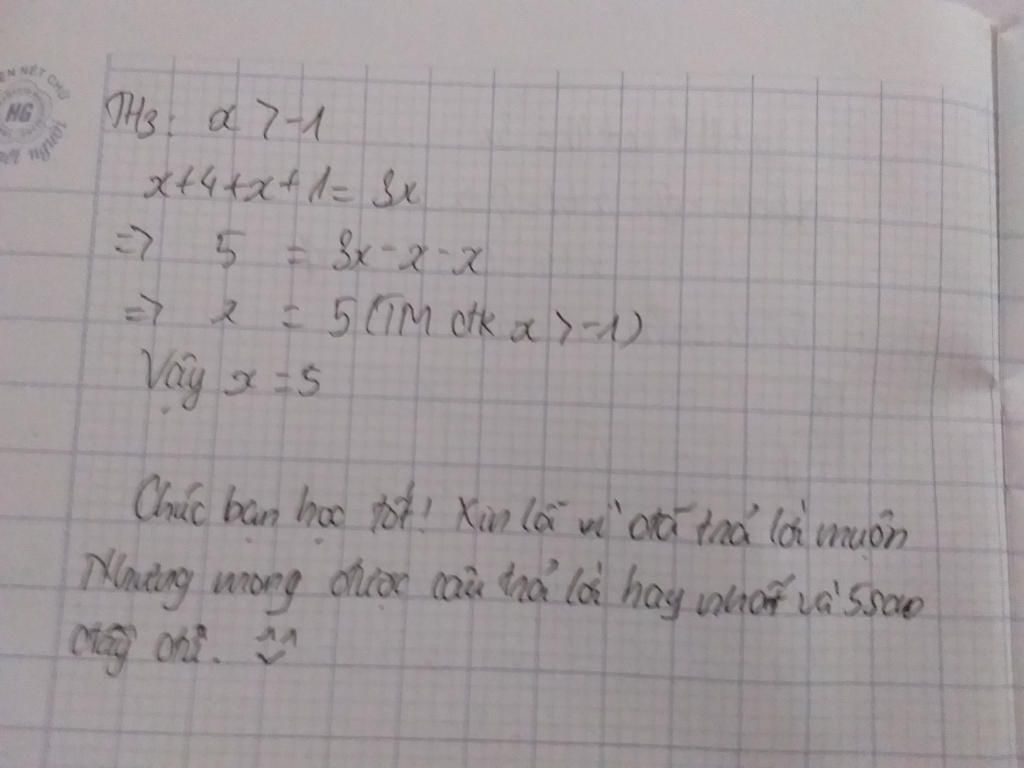 TH3: x > -1
x+4+x+1= 3x
=> 5 = 3x-x-x
=> x = 5 (TM đk x > -1)
Vậy x = 5
Chúc bạn học tốt! Xin lỗi vì đã trả lời muộn
Nhưng mong được câu trả lời hay nhất và 5 sao
đấy nhá. ^^
HG